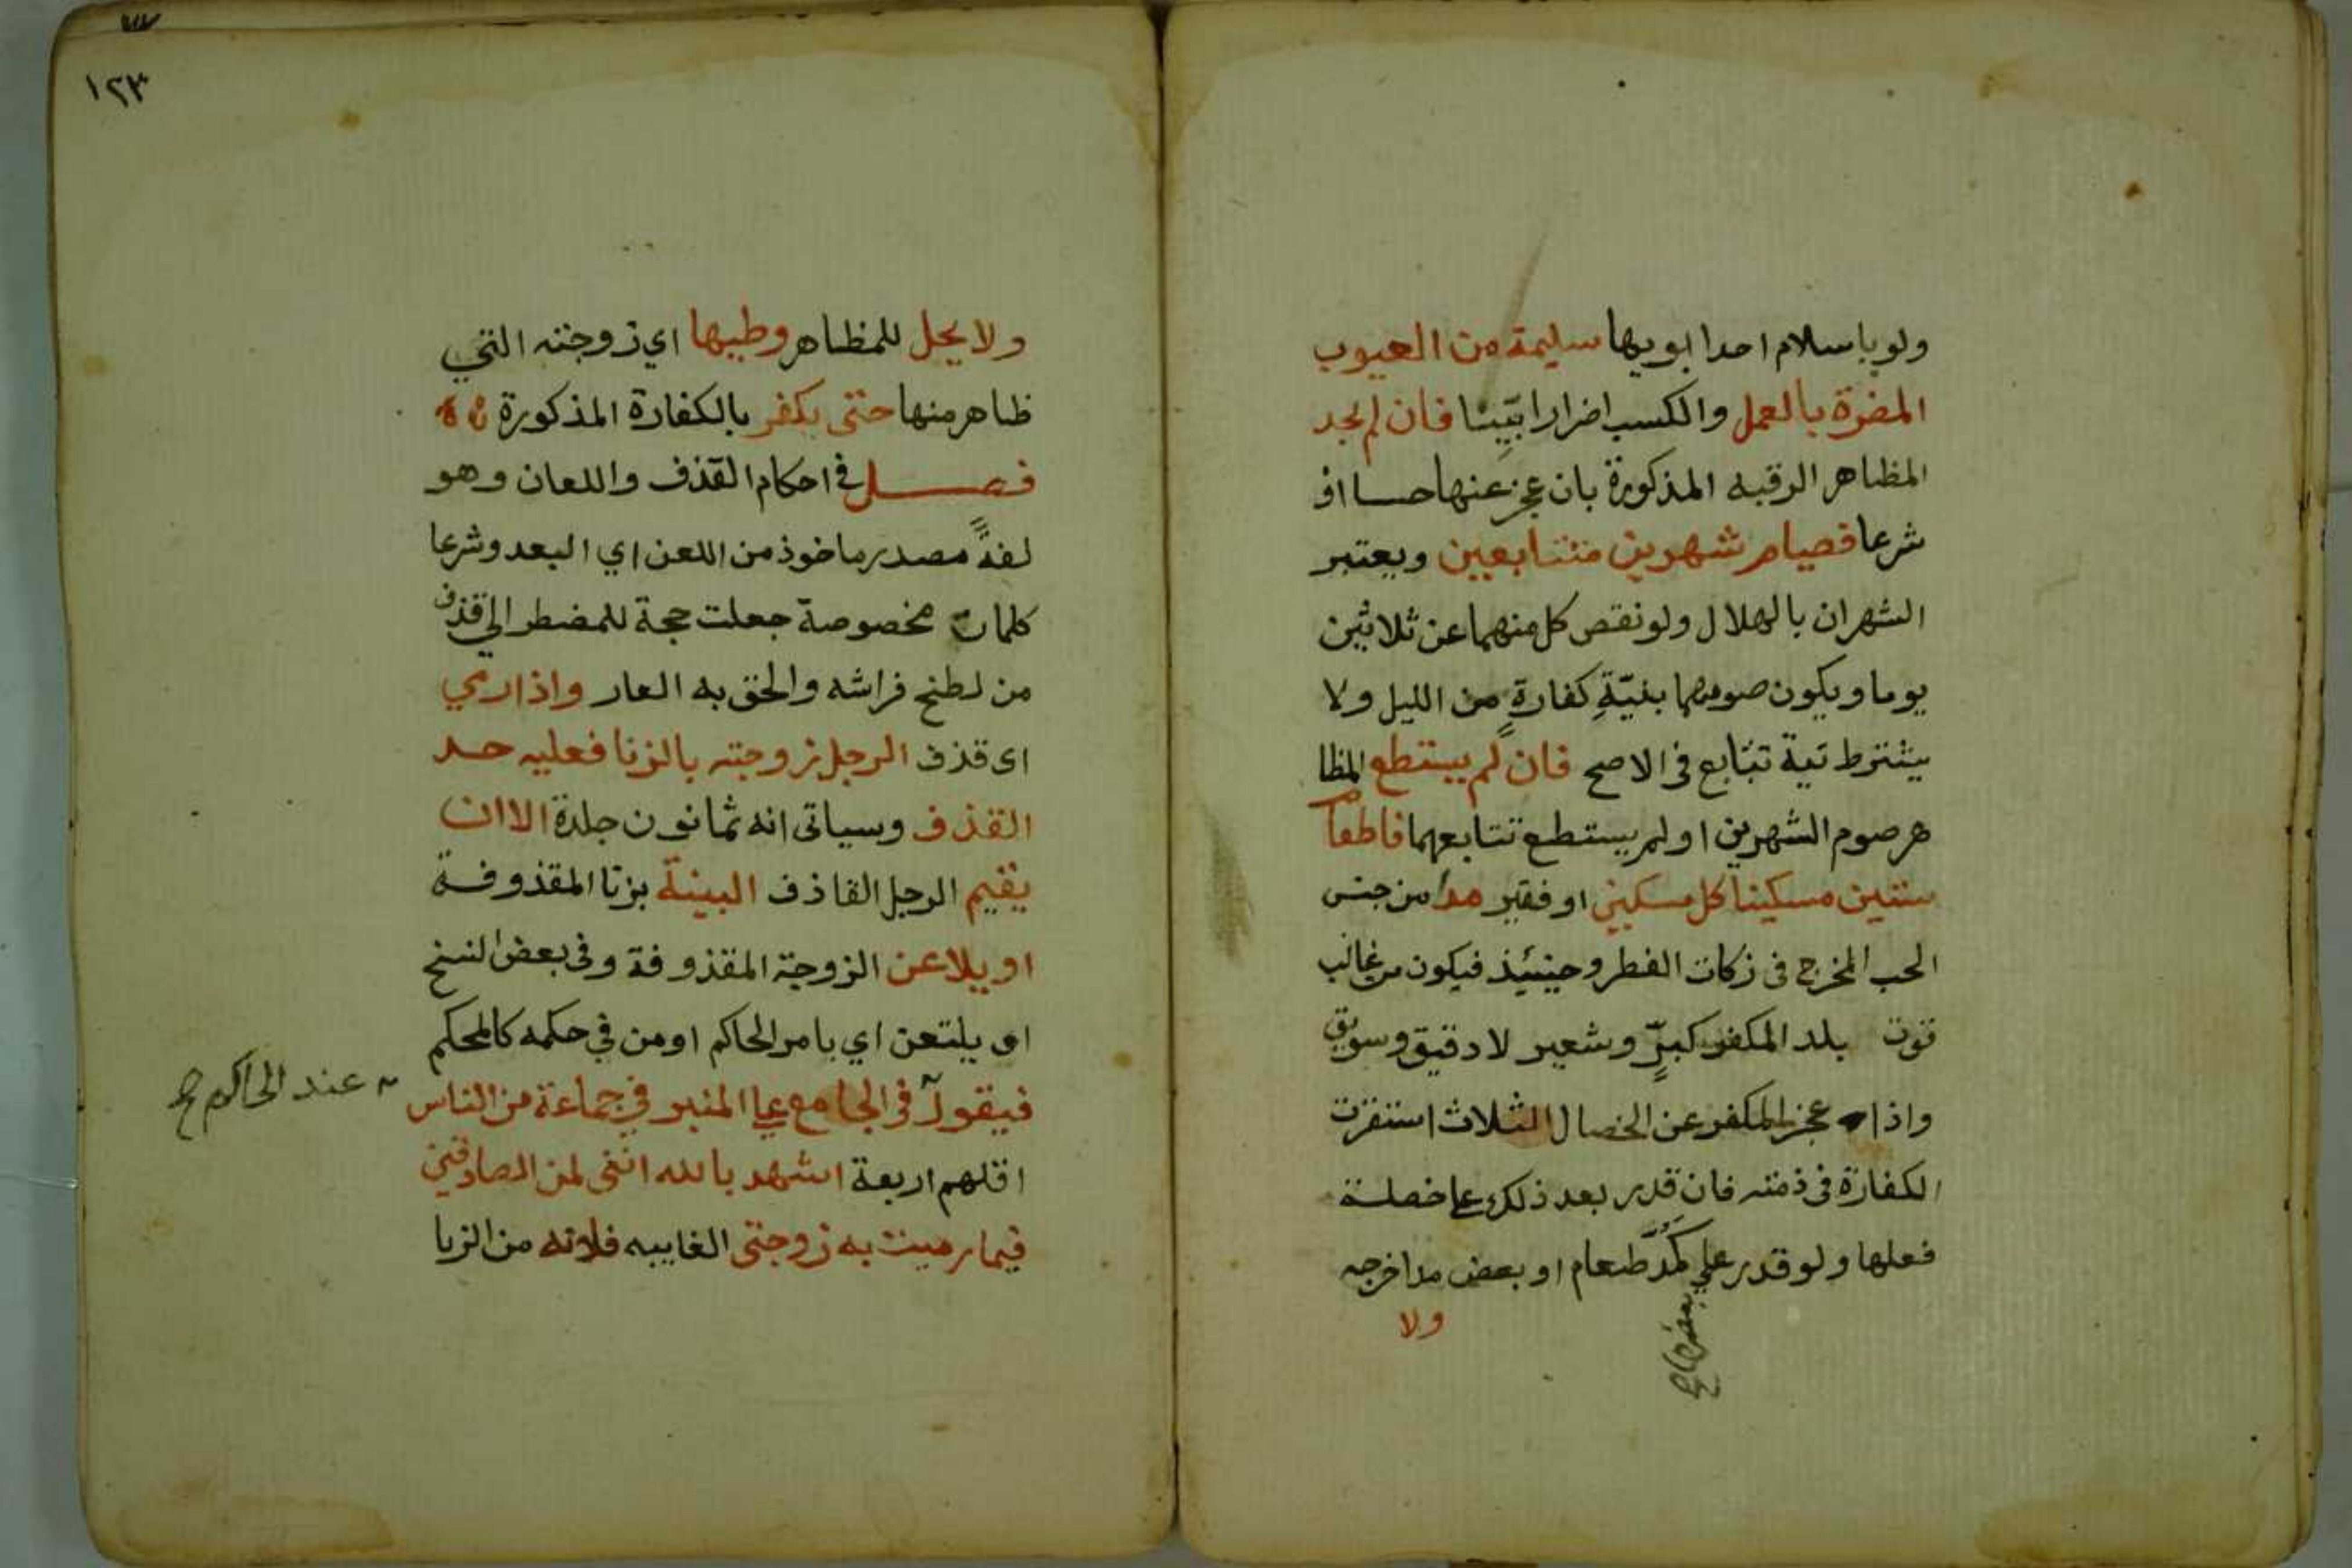 ولو باسلام احد ابويها سليمة من العيوب
المضرة بالعمل والكسب اضرارا بيّنا فان لم يجد
المظاهر الرقبه المذكورة بان عجز عنها حسا او
شرعا فصيام شهرين متتابعين ويعتبر
الشهران بالهلال ولو نقص كل منهما عن ثلاثين
يوما ويكون صومهما بنيّةِ كفارةٍ من الليل ولا
يشترط نية تتابع فى الاصح فان لم يستطع المظا
هر صوم الشهرين او لم يستطع تتابعهما فاطعام
ستين مسكينا كل مسكين او فقير مدا من جنس
الحب المخرج فى زكات الفطر وحينئذ فيكون من غالب
قوت بلد المكفر كبرٍّ وشعير لا دقيق وسويق
واذا عجز المكفر عن الخصال الثلاث استقرت
الكفارة فى ذمته فان قدر بعد ذلك على خصلة
فعلها ولو قدر على كمُدّ طعام او بعض مد اخرجه
بعضها
ولا
١٢٣
ولا يحل للمظاهر وطيها اي زوجته التي
ظاهر منها حتى يكفر بالكفارة المذكورة
فصل في احكام القذف واللعان وهو
لغةً مصدر ماخوذ من اللعن اي البعد وشرعا
كلمات مخصوصة جعلت حجة للمضطر الي قذف
من لطخ فراشه والحق به العار واذا رمي
اى قذف الرجل زوجته بالزنا فعليه حد
القذف وسياتى انه ثمانون جلدة الا ان
يقيم الرجل القاذف البينة بزنا المقذوفة
او يلاعن الزوجة المقذوفة وفى بعض النسخ
او يلتعن اي بامر الحاكم او من في حكمه كالمحكم
فيقول فى الجامع على المنبر في جماعة من الناس
عند الحاكم
اقلهم اربعة اشهد بالله اننى لمن الصادقين
فيما رميت به زوجتى الغايبه فلانه من الزنا